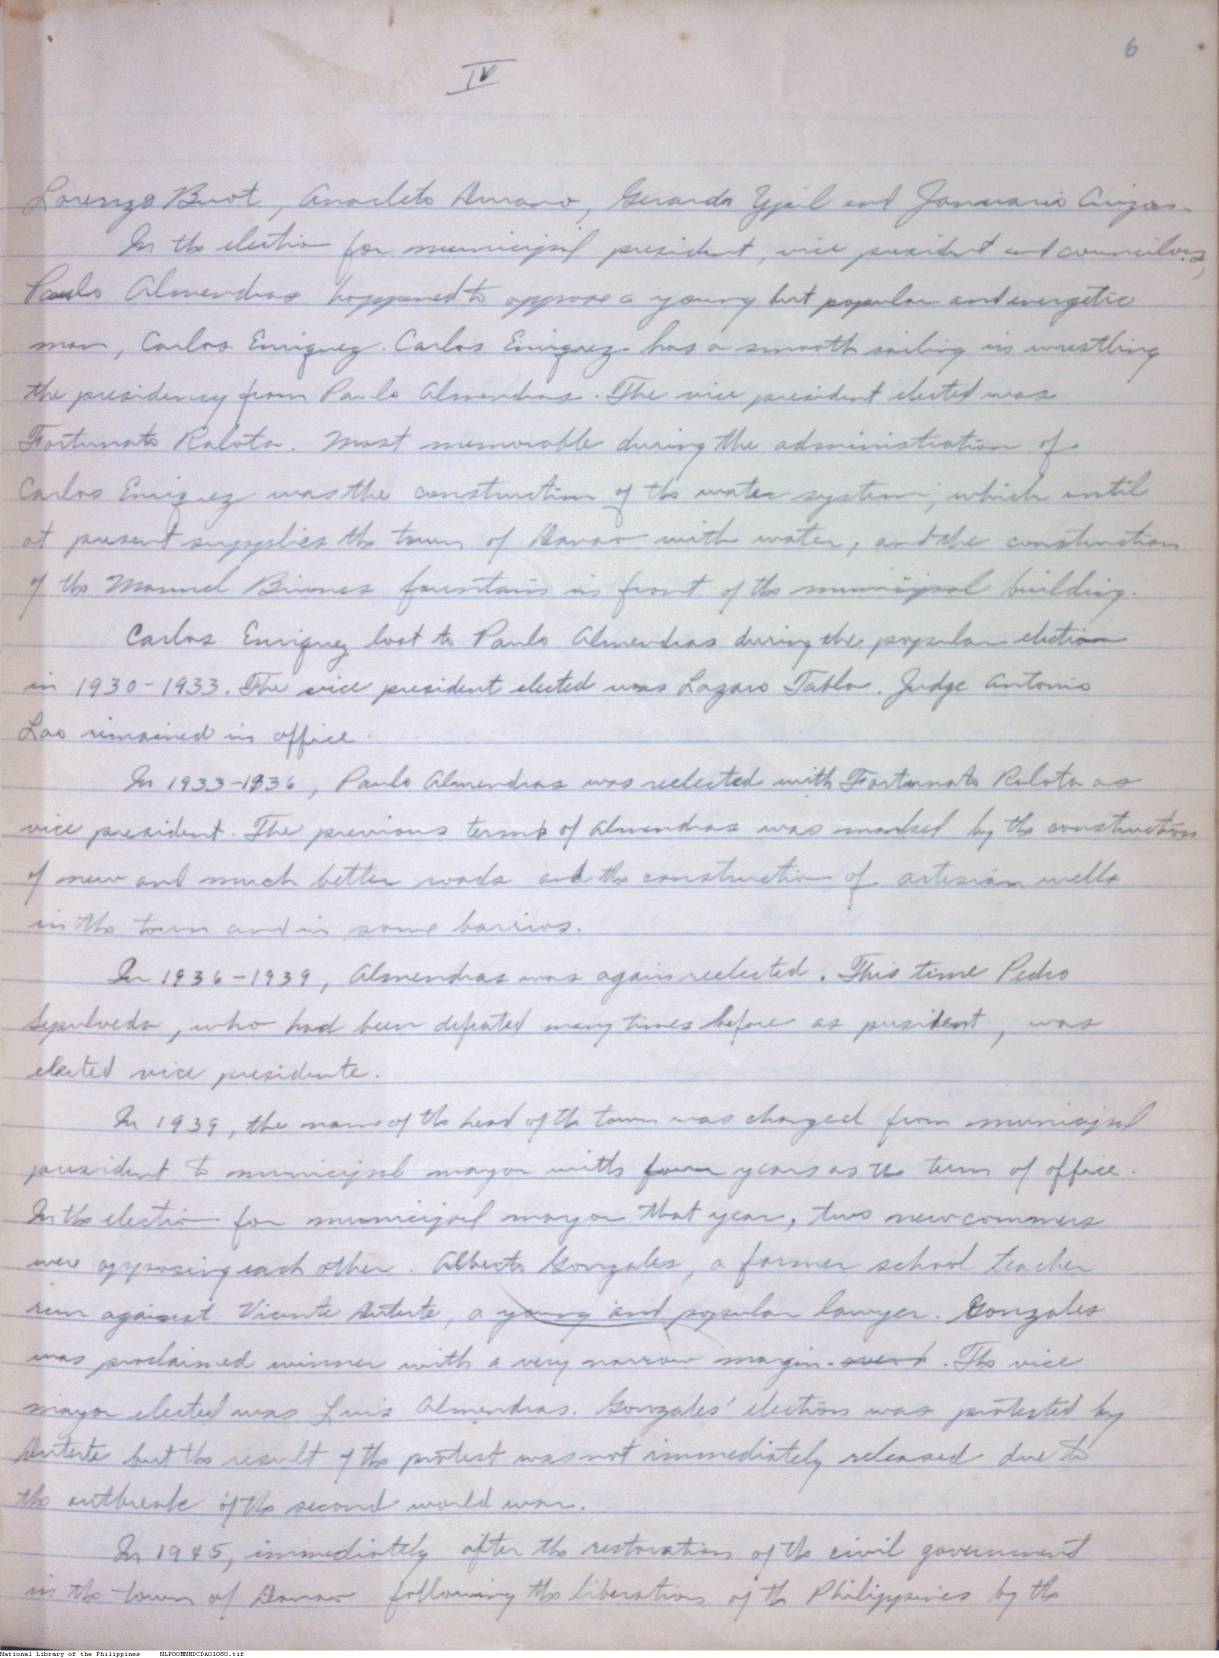 6
IV
Lorenzo Buot, Anacleto Durano, Gerardo Ypil and Januario
In the election for municipal president, vice president and councilors,
Paulo Almendras happened to oppose a young but popular and energetic
man, Carlos Enriquez. Carlos Enriquez has a smooth sailing in wrestling
the presidency from Paulo Almendras. The vice president elected was
Fortunato Ralota. Most memorable during the administration of
Carlos Enriquez was the construction of the water system, which until
at present supplies the town of Danao with water, and the construction
of the Manuel Briones fountain in front of the municipal building.
Carlos Enriquez lost to Paulo Almendras during the popular election
in 1930-1933. The vice president elected was Lazaro Tabla. Judge Antonio
Lao remained in office.
In 1933-1936, Paulo Almendras was reelected with Fortunato Ralota as
vice president. The previous terms of Almendras was marked by the construction
of new and much better roads and the construction of artesian wells
in the town and in some barrios.
In 1936-1939, Almendras was again reelected. This time Pedro
Sepulveda, who had been defeated many times before as president, was
elected vice presidente.
In 1939, the name of the head of the town was changed from municipal
president to municipal mayor with four years as the term of office.
In the election for municipal mayor that year, two newcommers
were opposing each other. Alberto Gonzales, a former school teacher
run against Vicente Duterte, a young and popular lawyer. Gonzales
was proclaimed winner with a very narrow margin. The vice
mayor elected was Luis Almendras. Gonzales' election was protested by
Duterte but the result of the protest was not immediately released due to
the outbreak of the second world war.
In 1945, immediately after the restoration of the civil government
in the town of Danao following the liberation of the Philippines by the
National Library of the Philippines NLPOOMNHDCDA01060.tif